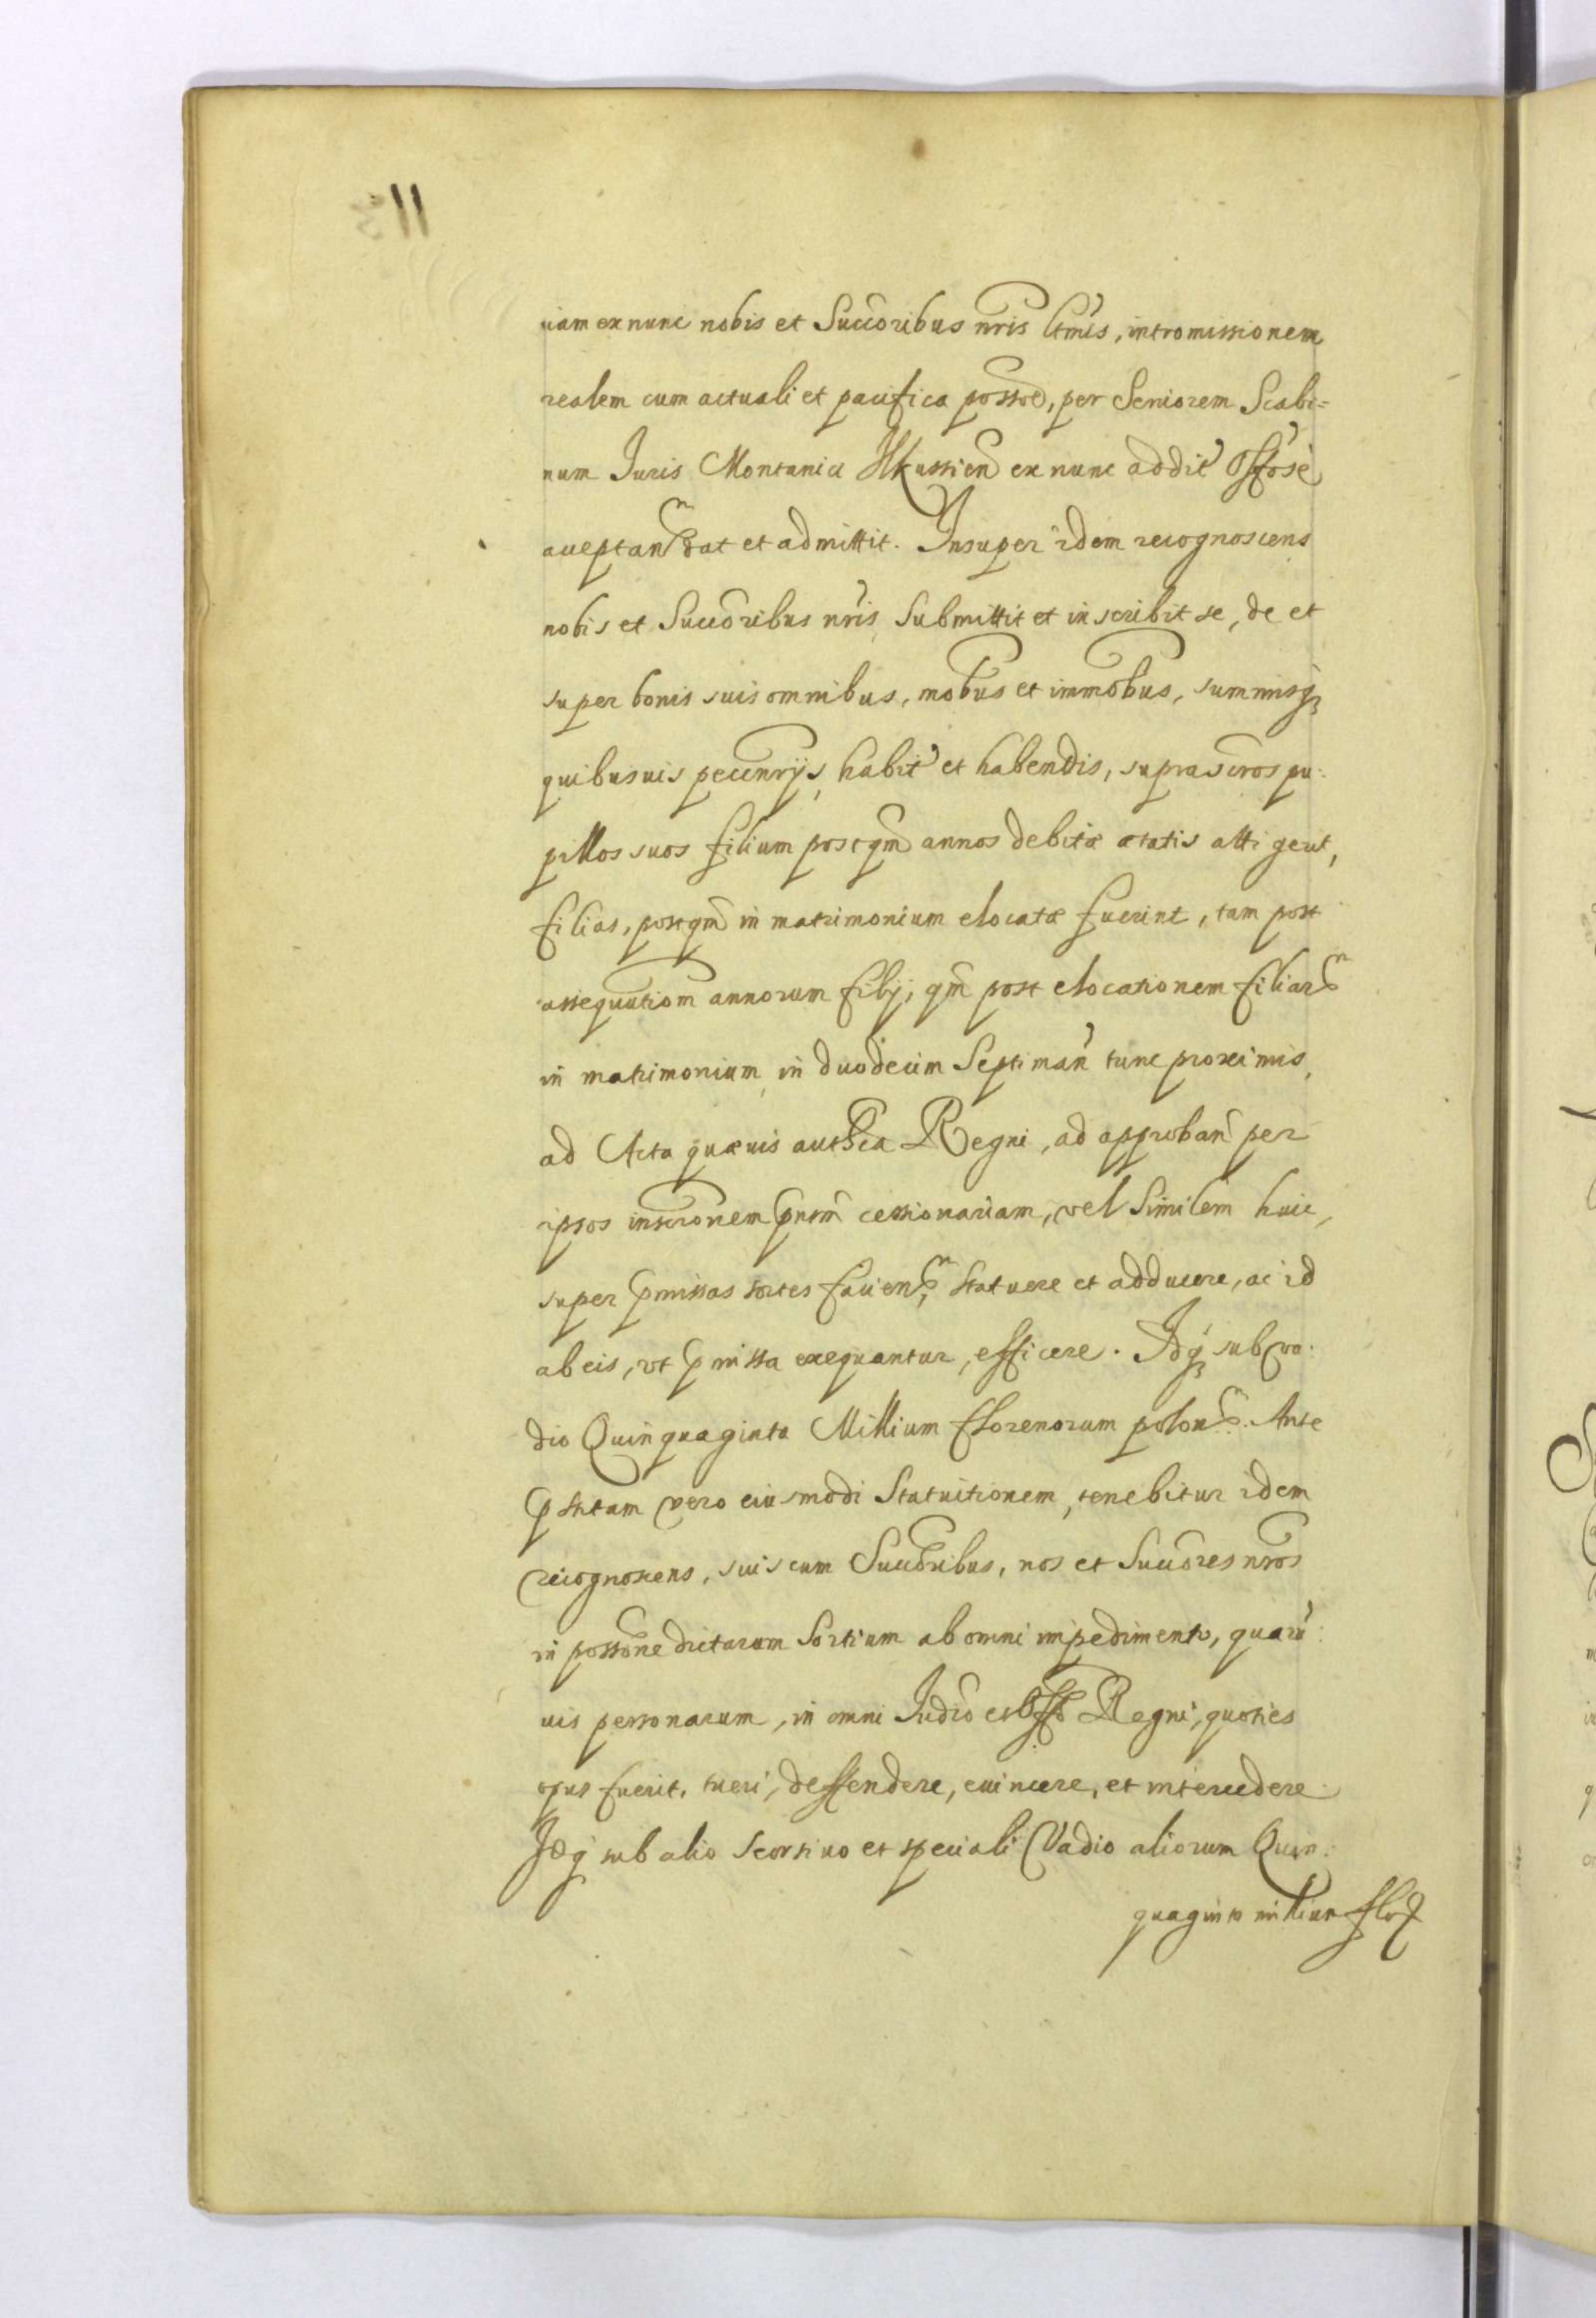 uam ex nunc nobis et Succoribus nris ltmis, intromissionem
realem cum actuali et pacifica possoe, per Seniorem Scabi=
num Juris Montanici Ilkussien ex nunc addit Offose
acceptan dat et admittit. Insuper idem recognoscens
nobis et Succoribus nris submittit et inscribit se, de et
super bonis suis omnibus, mobus et immobus, summisq
quibusuis pecunrijs habit et habendis, suprascros pu:
pillos suos filium postqm annos debitæ ætatis attigerit,
filias, postqm in matrimonium elocatæ fuerint, tam post
assequutiom annorum filij, qm post elocationem filiar
in matrimonium, in duodecim Septiman tunc proximis,
ad Acta quæuis authca Regni, ad approban per
ipsos inscronem pntm cessionariam, vel Similem huic,
super pmissas sortes facien, statuere et adducere, ac id
ab eis, vt pmissa exequantur, efficere. Idq sub va:
dio Quinquaginta Millium florenorum polon. Ante
pstitam vero eiusmodi Statuitionem, tenebitur idem
recognoscens, suis cum Succoribus, nos et Succores nros
in possone dictarum Sortium ab omni impedimento, quaru:
uis personarum, in omni Judio et Offo Regni, quoties
opus fuerit, tueri, deffendere, euincere, et intercedere
Idq sub alio Seorsiuo et speciali Vadio aliorum Quin:
quaginta millium flor